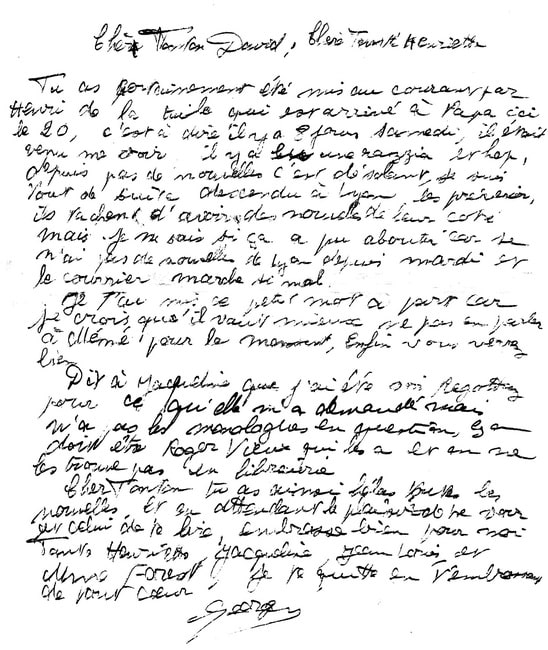 Cher Tonton David, Chère Tante Henriette
Tu as certainement été mis au courant par
Henri de la tuile qui est arrivé à Papa ici
le 20, c'est à dire il y a 8 jours samedi, il était
venu me voir il y a eu une razzia et hop,
depuis pas de nouvelles c'est désolant, je suis
tout de suite descendu à Lyon les prévenir,
ils tachent d'avoir des nouvelles de leur coté
mais je ne sais si ça a pu aboutir car je
n'ai pas de nouvelles de Lyon depuis mardi et
le courrier marche si mal.
Je t'ai mis ce petit mot à part car
je crois qu'il vaut mieux ne pas en parler
à Mémé pour le moment, Enfin vous verrez
bien
Dit à Jacqueline que j'ai été voir
pour ce qu'elle m'a demandé mais
n'a pas les monologues en question,
doit être Roger Vieux qui les a et on ne
les trouve pas en librairie
Cher Tonton tu as ainsi hélas toutes les
nouvelles et en attendant le plaisir de te voir
et celui de te lire, embrasse bien pour moi
Tante Henriette, Jacqueline, Jean Louis et
Mme Forest, Je te quitte en t'embrassant
de tout cœur,
Georges